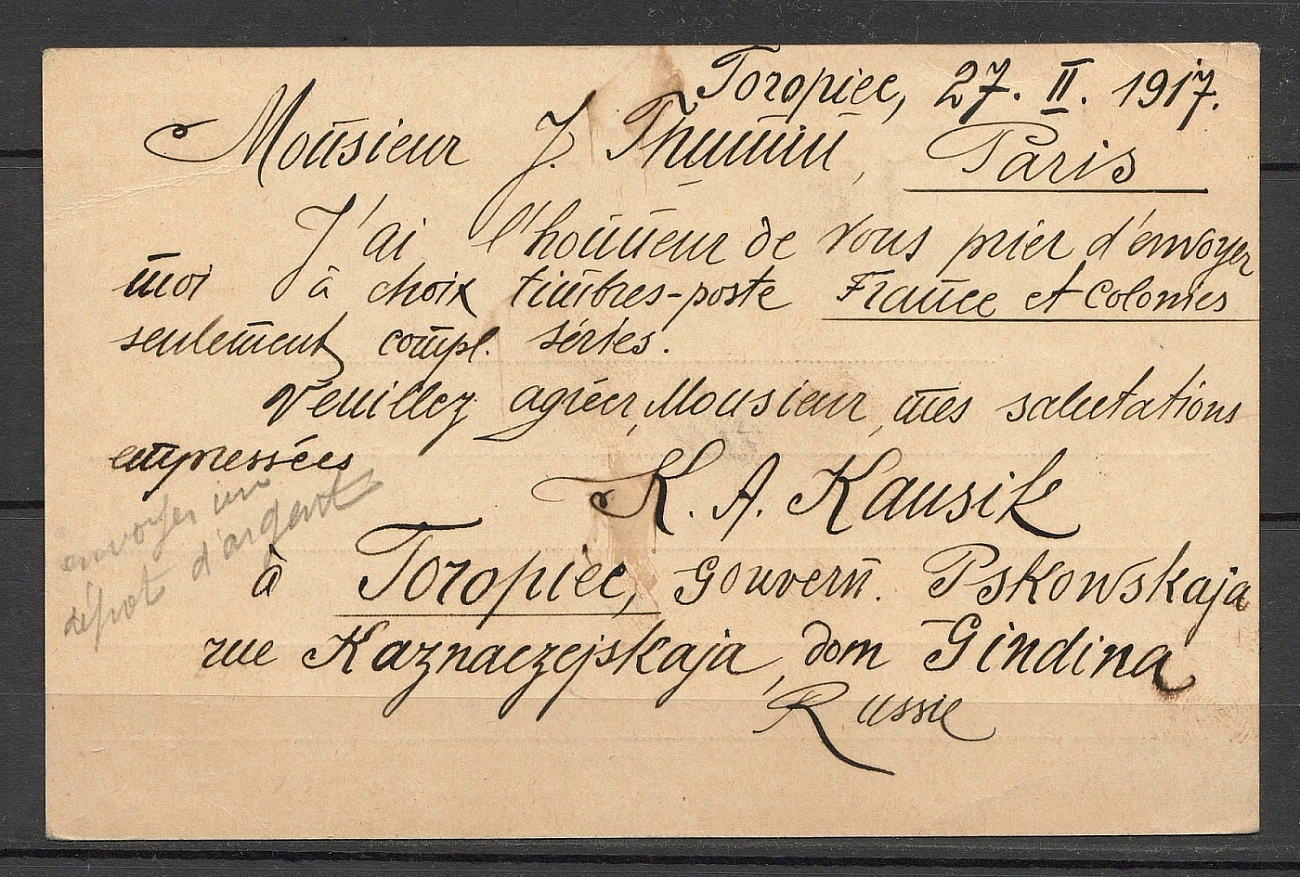 Toropiec, 27. II. 1917.
Monsieur J. Thumin, Paris
J'ai l'honneur de vous prier d'envoyer
moi à choix timbres-poste France et Colonies
seulement compl. séries.
Veuillez agréer, Monsieur, mes salutations
empressées
K. A. Kausik
envoyer un
dépot d'argent
à Toropiec, Gouvern. Pskowskaja
rue Kaznaczejskaja, dom Gindina
Russie